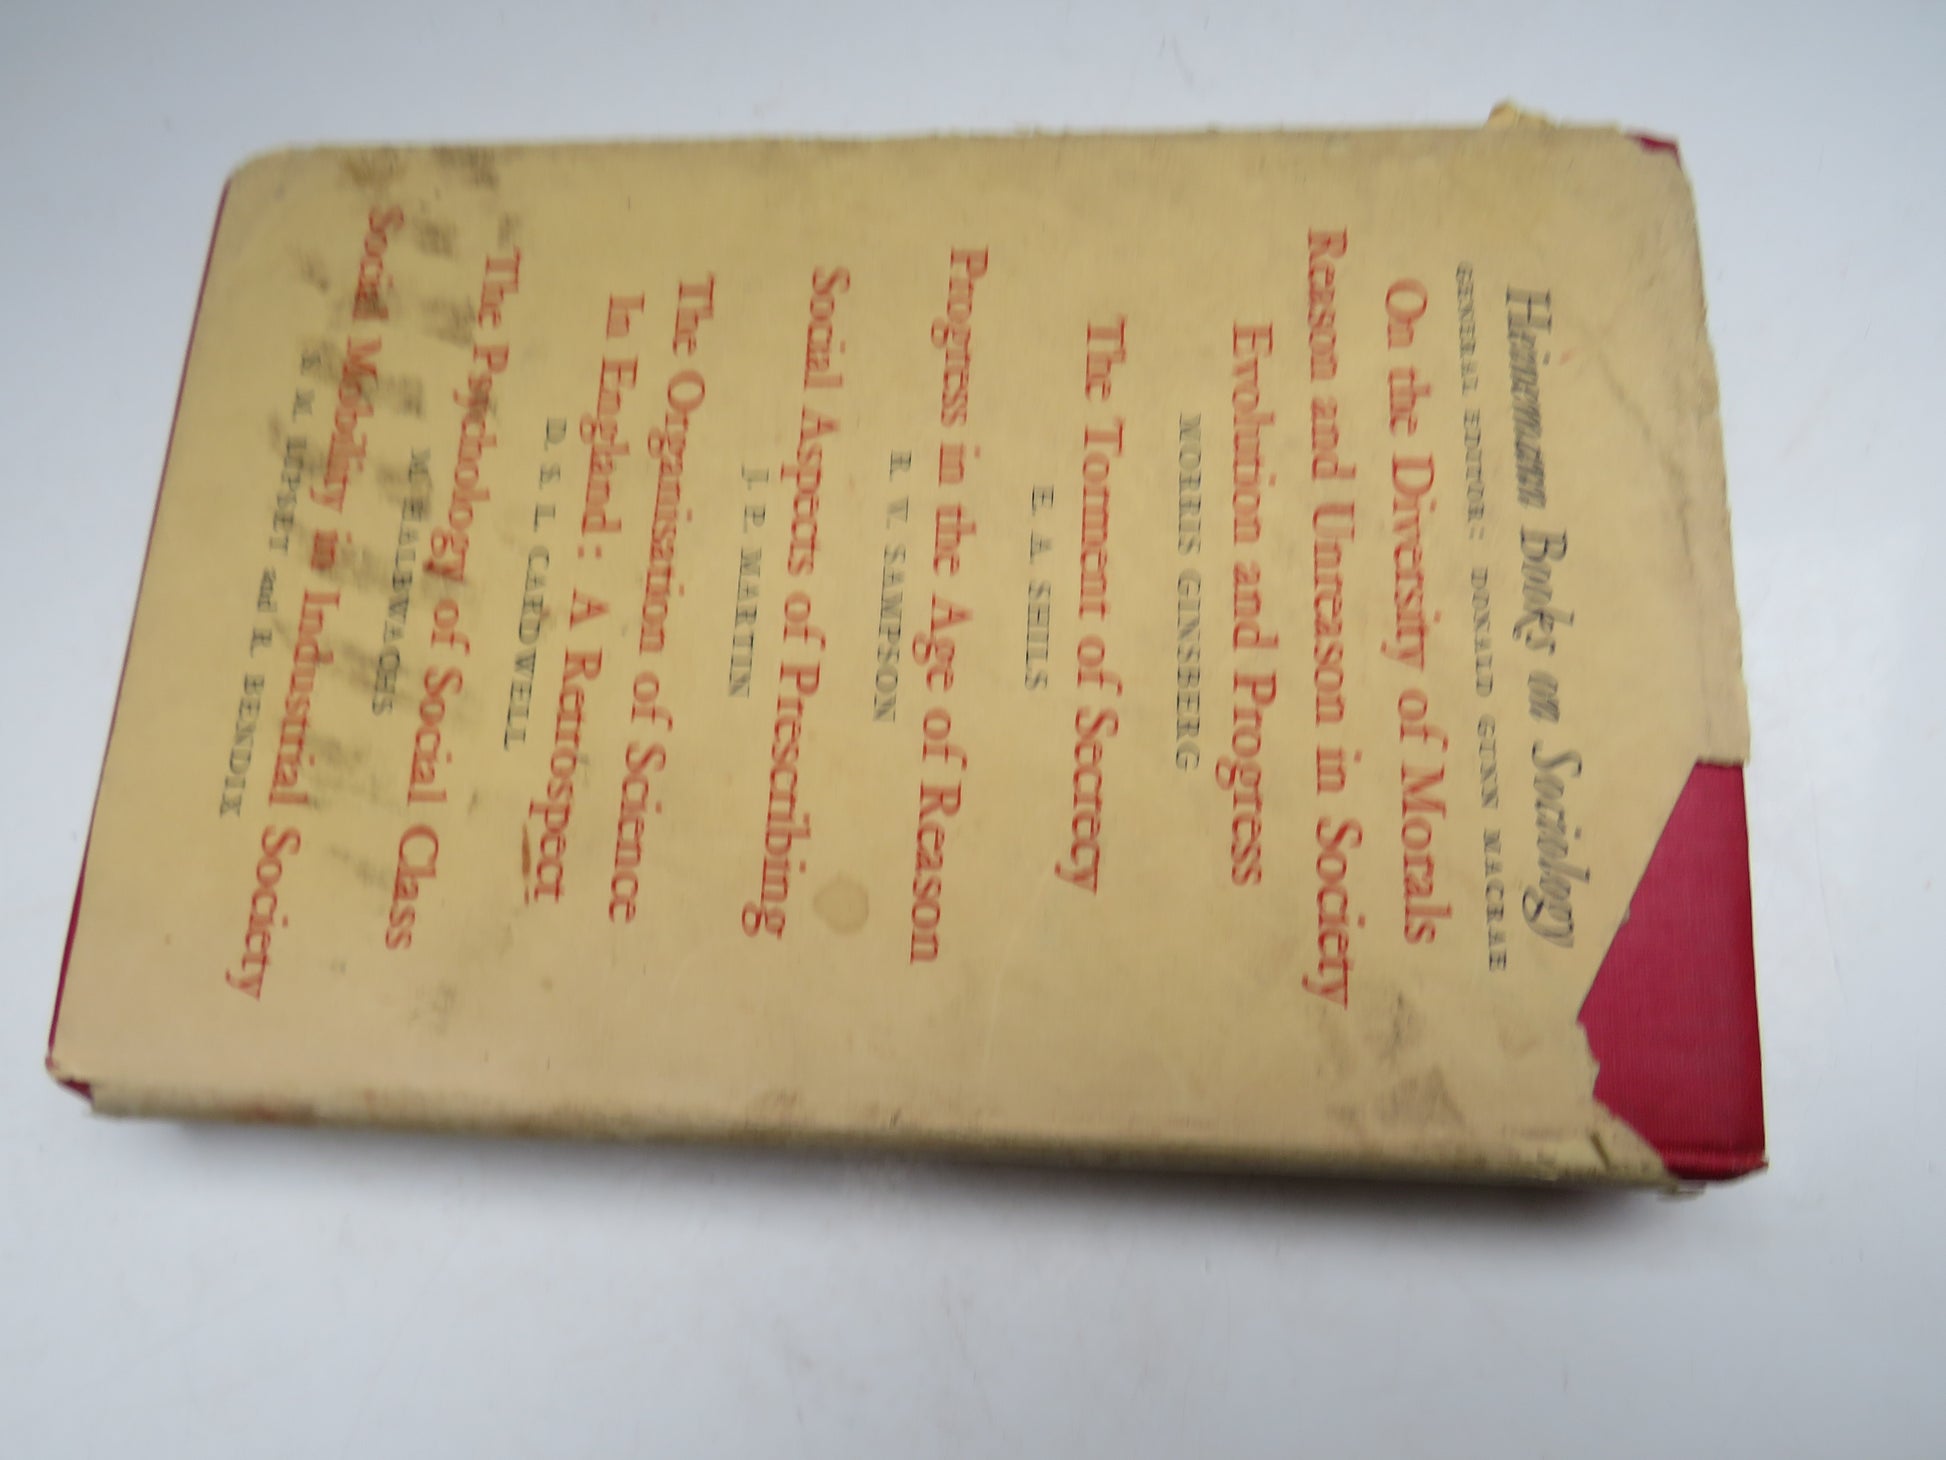 Heinemann Books on Sociology
GENERAL EDITOR: DONALD GUNN MACRAE
On the Diversity of Morals
Reason and Unreason in Society
Evolution and Progress
MORRIS GINSBERG
The Torment of Secrecy
E. A. SHILS
Progress in the Age of Reason
R. V. SAMPSON
Social Aspects of Prescribing
J. P. MARTIN
The Organisation of Science
In England: A Retrospect
D. S. L. CARDWELL
The Psychology of Social Class
M. HALBWACHS
Social Mobility in Industrial Society
S. M. LIPSET and R. BENDIX